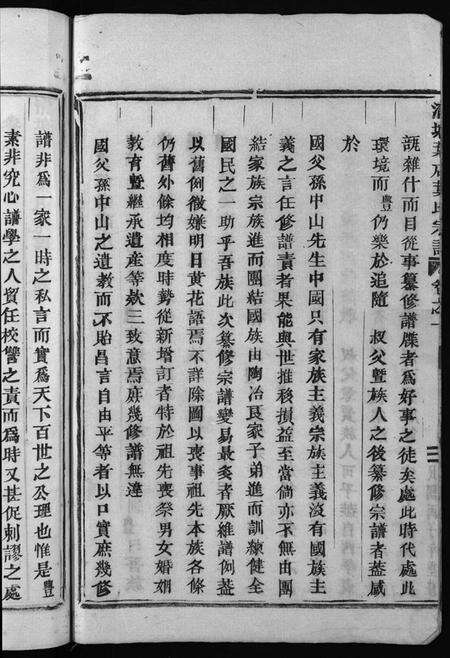 翫雜什而目從事纂修譜牒者爲好事之徒矣處此時代處此
環境而豐仍樂於追隨　叔父暨族人之後纂修宗譜者蓋感
於
國父孫中山先生中國只有家族主義宗族主義沒有國族主
義之言任修譜責者果能與世推移損益至當倘亦不無由團
結家族宗族進而團結國族由陶冶良家子弟進而訓練健全
國民之一助乎吾族此次纂修宗譜變易最多者厥維譜例蓋
以舊例微嫌明日黃花語焉不詳除圖以喪事祖先本族各條
仍舊外餘均相度時勢從新增訂者特於祖先喪祭男女婚姻
教育暨繼承遺產等欵三致意焉庶幾修譜無違
國父孫中山之遺教而不貽昌言自由平等者以口實庶幾修
譜非爲一家一時之私言而實爲天下百世之公理也惟是豐
素非究心譜學之人貿任校讐之責而爲時又甚促刺謬之處